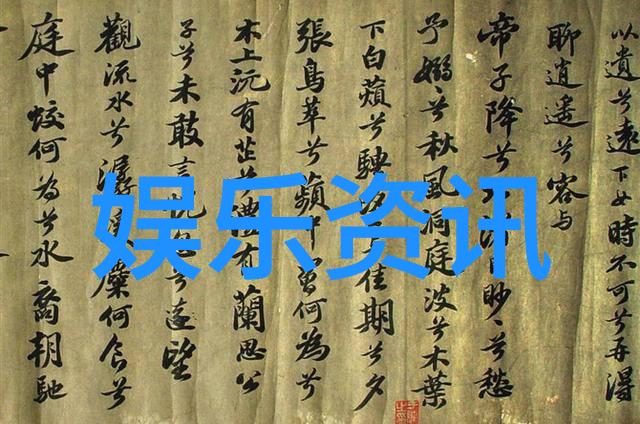 以遺兮遠下女時不可兮再得
聊逍遙兮容与
帝子降兮眇〻兮愁
予嫋〻兮秋風洞庭波兮木葉
下白蘋兮騁佳期兮夕
張鳥萃兮蘋中何為兮
木上沅有芷兮澧有蘭思公
子兮未敢言兮遠望
觀流水兮潺麋何食兮
庭中蛟何為兮水裔朝馳
娱乐资讯